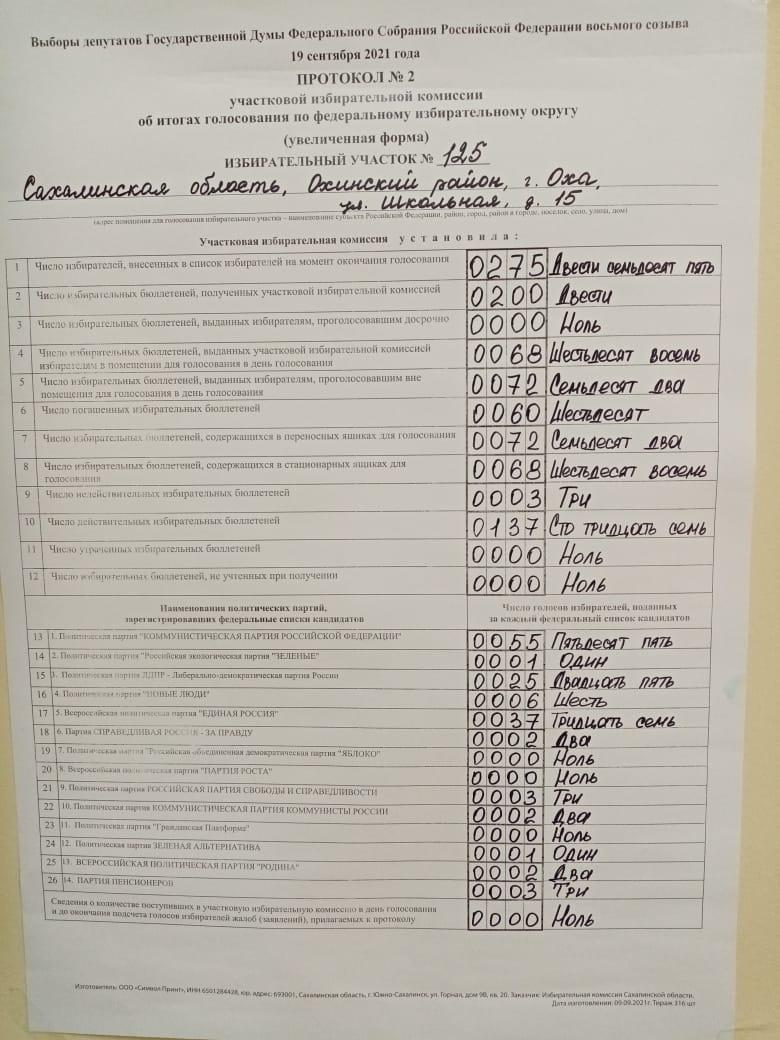 Выборы депутатов Государственной Думы Федерального Собрания Российской Федерации восьмого созыва
19 сентября 2021 года
ПРОТОКОЛ № 2
участковой избирательной комиссии
об итогах голосования по федеральному избирательному округу
(увеличенная форма)
ИЗБИРАТЕЛЬНЫЙ УЧАСТОК № 125
Сахалинская область, Охинский район, г. Оха,
ул. Школьная, д. 15
(адрес помещения для голосования избирательного участка – наименование субъекта Российской Федерации, район, город, район в городе, поселок, село, улица, дом)
Участковая избирательная комиссия установила:
1 Число избирателей, внесенных в список избирателей на момент окончания голосования 0275 Двести семьдесят пять
2 Число избирательных бюллетеней, полученных участковой избирательной комиссией 0200 Двести
3 Число избирательных бюллетеней, выданных избирателям, проголосовавшим досрочно 0000 Ноль
4 Число избирательных бюллетеней, выданных участковой избирательной комиссией
избирателям в помещении для голосования в день голосования 0068 Шестьдесят восемь
5 Число избирательных бюллетеней, выданных избирателям, проголосовавшим вне
помещения для голосования в день голосования 0072 Семьдесят два
6 Число погашенных избирательных бюллетеней 0060 Шестьдесят
7 Число избирательных бюллетеней, содержащихся в переносных ящиках для голосования 0072 Семьдесят два
8 Число избирательных бюллетеней, содержащихся в стационарных ящиках для
голосования 0068 Шестьдесят восемь
9 Число недействительных избирательных бюллетеней 0003 Три
10 Число действительных избирательных бюллетеней 0137 Сто тридцать семь
11 Число утраченных избирательных бюллетеней 0000 Ноль
12 Число избирательных бюллетеней, не учтенных при получении 0000 Ноль
Наименования политических партий, Число голосов избирателей, поданных
зарегистрировавших федеральные списки кандидатов за каждый федеральный список кандидатов
13 1. Политическая партия "КОММУНИСТИЧЕСКАЯ ПАРТИЯ РОССИЙСКОЙ ФЕДЕРАЦИИ" 0055 Пятьдесят пять
14 2. Политическая партия "Российская экологическая партия "ЗЕЛЕНЫЕ" 0001 Один
15 3. Политическая партия ЛДПР - Либерально-демократическая партия России 0025 Двадцать пять
16 4. Политическая партия "НОВЫЕ ЛЮДИ" 0006 Шесть
17 5. Всероссийская политическая партия "ЕДИНАЯ РОССИЯ" 0037 Тридцать семь
18 6. Партия СПРАВЕДЛИВАЯ РОССИЯ - ЗА ПРАВДУ 0002 Два
19 7. Политическая партия "Российская объединенная демократическая партия "ЯБЛОКО" 0000 Ноль
20 8. Всероссийская политическая партия "ПАРТИЯ РОСТА" 0000 Ноль
21 9. Политическая партия РОССИЙСКАЯ ПАРТИЯ СВОБОДЫ И СПРАВЕДЛИВОСТИ 0003 Три
22 10. Политическая партия КОММУНИСТИЧЕСКАЯ ПАРТИЯ КОММУНИСТЫ РОССИИ 0002 Два
23 11. Политическая партия "Гражданская Платформа" 0000 Ноль
24 12. Политическая партия ЗЕЛЕНАЯ АЛЬТЕРНАТИВА 0001 Один
25 13. ВСЕРОССИЙСКАЯ ПОЛИТИЧЕСКАЯ ПАРТИЯ "РОДИНА" 0002 Два
26 14. ПАРТИЯ ПЕНСИОНЕРОВ 0003 Три
Сведения о количестве поступивших в участковую избирательную комиссию в день голосования
и до окончания подсчета голосов избирателей жалоб (заявлений), прилагаемых к протоколу 0000 Ноль
Изготовитель: ООО «Символ Принт», ИНН 6501284428, юр. адрес: 693001, Сахалинская область, г. Южно-Сахалинск, ул. Горная, дом 9В, кв. 20. Заказчик: Избирательная комиссия Сахалинской области.
Дата изготовления: 09.09.2021г. Тираж 316 шт